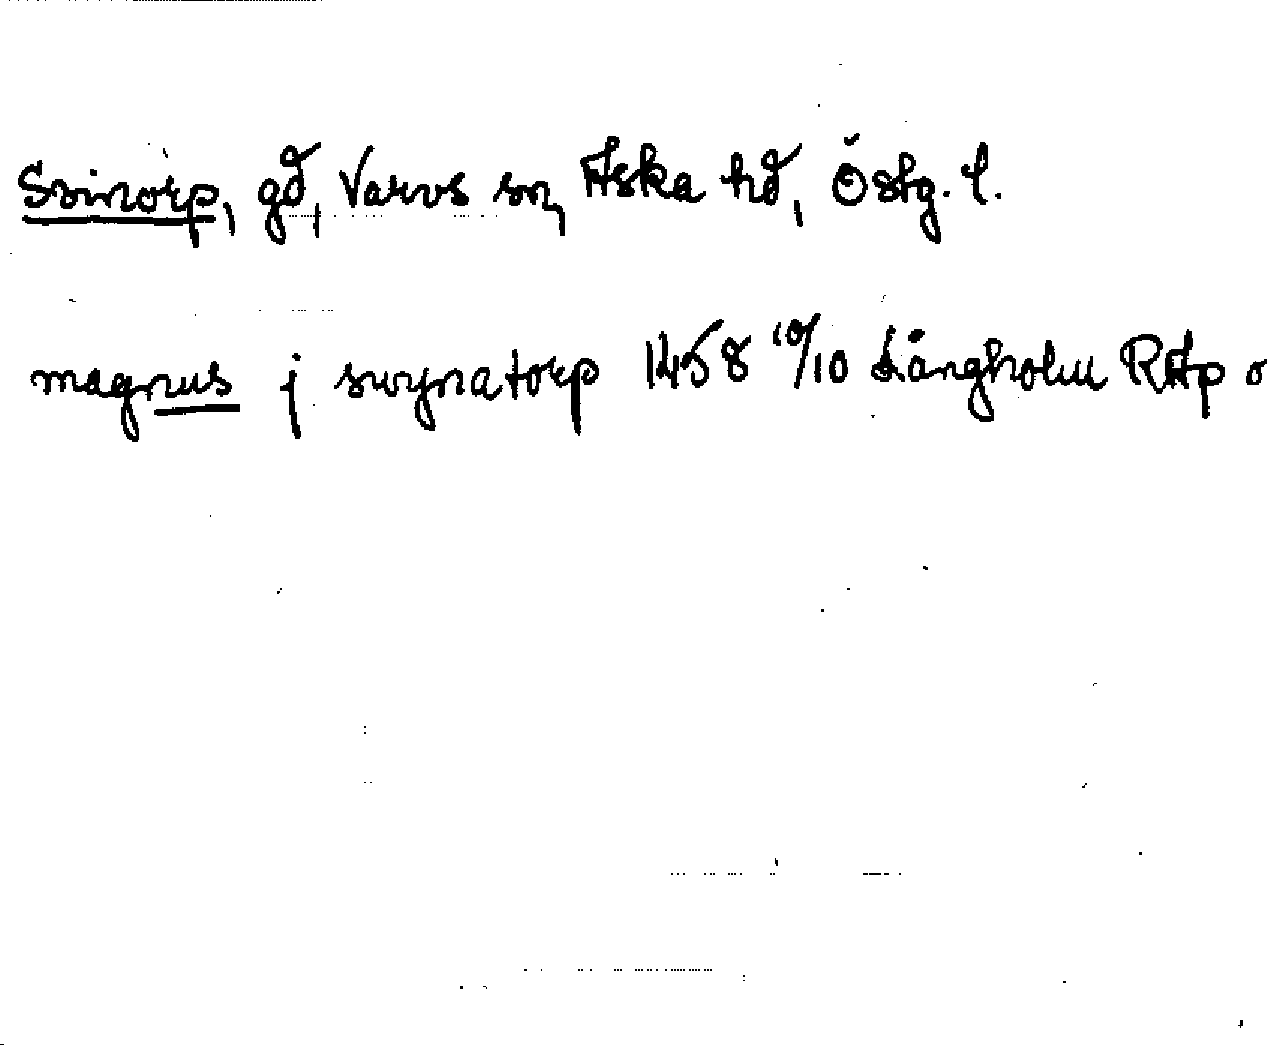 Svinorp, gd, Varvs sn, Aska hd, Östg. l.
magnus j swynatorp 1458 10/10 Långholm RAp o